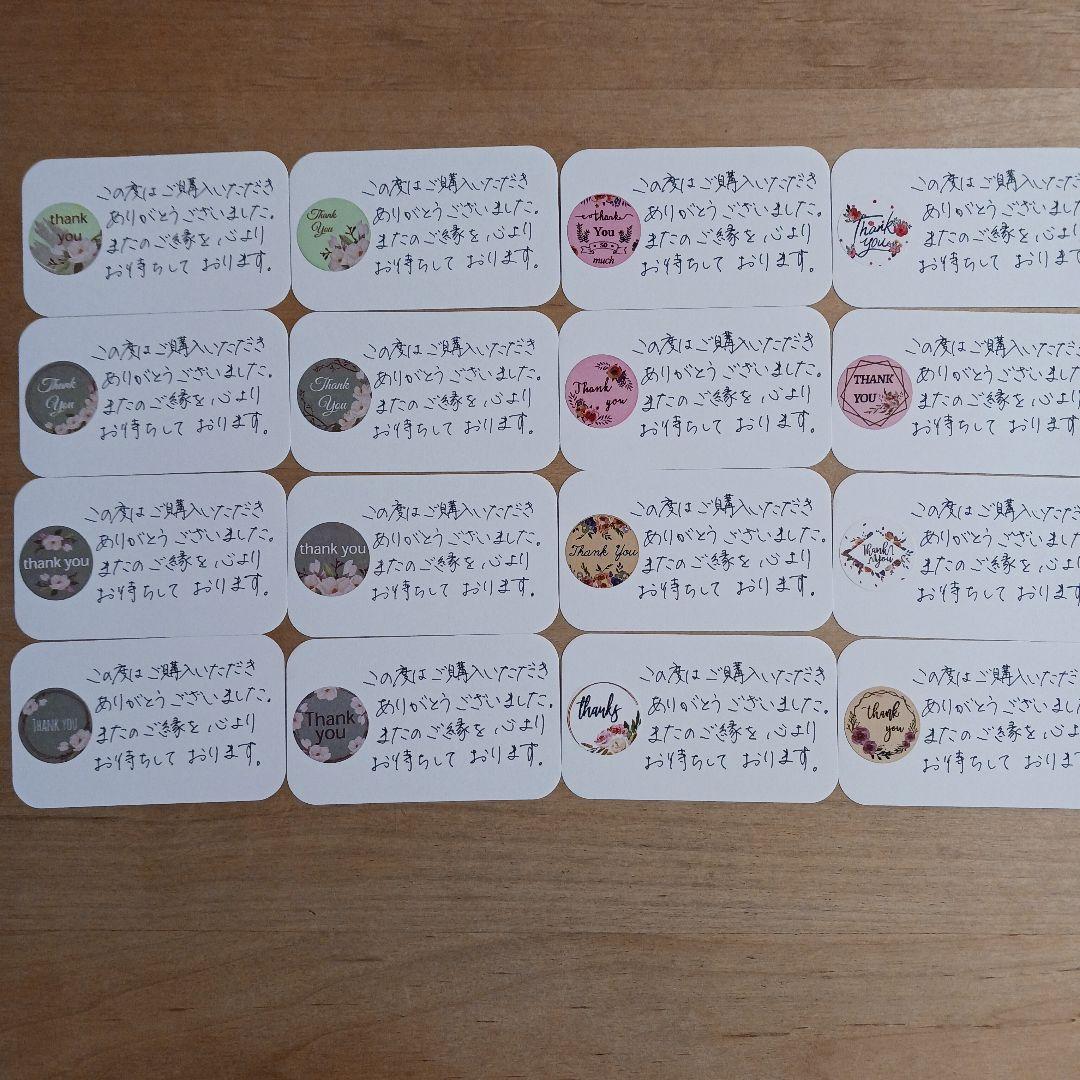 thank
you
この度はご購入いただき
ありがとうございました。
またのご縁を、心より
お待ちして おります。
Thank
You
この度はご購入いただき
ありがとうございました。
またのご縁を、心より
お待ちして おります。
thank
You
so
much
この度はご購入いただき
ありがとうございました。
またのご縁を、心より
お待ちして おります。
Thank
you
この度はご購入いただ
ありがとうございまし
またのご縁を、心よ
お待ちして おりま
Thank
You
この度はご購入いただき
ありがとうございました。
またのご縁を、心より
お待ちして おります。
Thank
You
この度はご購入いただき
ありがとうございました。
またのご縁を、心より
お待ちして おります。
Thank
you
この度はご購入いただき
ありがとうございました。
またのご縁を、心より
お待ちして おります。
THANK
YOU
この度はご購入いただ
ありがとうございまし
またのご縁を、心よ
お待ちして おりま
thank you
この度はご購入いただき
ありがとうございました。
またのご縁を、心より
お待ちして おります。
thank you
この度はご購入いただき
ありがとうございました。
またのご縁を、心より
お待ちして おります。
Thank You
この度はご購入いただき
ありがとうございました。
またのご縁を、心より
お待ちして おります。
Thank
you
この度はご購入いただ
ありがとうございまし
またのご縁を、心よ
お待ちして おりま
THANK YOU
この度はご購入いただき
ありがとうございました。
またのご縁を、心より
お待ちして おります。
Thank
you
この度はご購入いただき
ありがとうございました。
またのご縁を、心より
お待ちして おります。
thanks
この度はご購入いただき
ありがとうございました。
またのご縁を、心より
お待ちして おります。
thank
you
この度はご購入いただ
ありがとうございまし
またのご縁を、心よ
お待ちして おりま